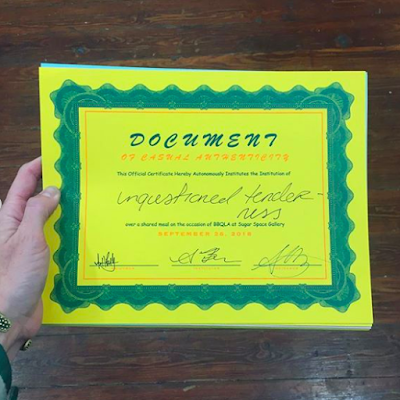 DOCUMENT
OF CASUAL AUTHENTICITY
This Official Certificate Hereby Autonomously Institutes the Institution of
unquestioned tender-
ness
over a shared meal on the occasion of BBQLA at Sugar Space Gallery
SEPTEMBER 30, 2016